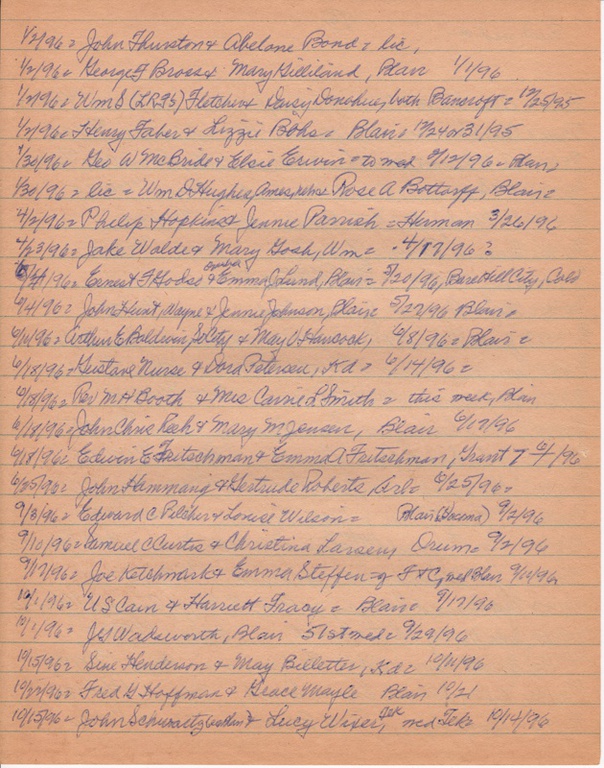 1/2/96 = John Thurston & Abelone Bond = lic,
1/2/96 = George F Bross & Mary Gilliland, Blair 1/1/96
1/2/96 = Wm S (LRFS) Fletcher & Daisy Donohue, both Bancroft = 12/25/95
1/2/96 = Henry Faber & Lizzie Bohs = Blair = 12/24 or 31/95
1/30/96 = Geo W McBride & Elsie Erwin = to wed 2/12/96 = Blair =
1/30/96 = lic = Wm D Hughes, Ames, Rose A Bottorff, Blair =
4/2/96 = Philip Hopkins & Jennie Parrish = Herman 3/26/96
4/23/96 = Jake Walde & Mary Gosh, Wm = 4/17/96 ?
Ernest F Hodse & Emma J Lund, Blair = 5/20/96, City, Colo
6/4/96 = John Hunt, Wayne & Jennie Johnson, Blair 5/27/96 Blair =
6/11/96 = Arthur E Baldwin, & May V Hancock, 6/8/96 = Blair =
6/18/96 = Gustave Nurse & Dora Petersen, Kd = 6/14/96 =
6/18/96 = Rev M H Booth & Mrs Carrie L Smith = this week, Blair
6/18/96 = John Chris Reeh & Mary M Jensen, Blair 6/17/96
6/18/96 = Edwin E Fritschman & Emma A Fritschman, Grant T 6/ /96
6/25/96 = John Hammang & Gertrude Roberts, Arl = 6/25/96 =
9/3/96 = Edward C Pilcher & Louise Wilson = Blair 9/2/96
9/10/96 = Samuel C Curtis & Christina Larsen, Orum = 9/2/96
9/17/96 = Joe Ketchmark & Emma Steffen = of F & C, wed Blair 9/11/96
10/1/96 = U S Cain & Harriett Tracy = Blair = 9/17/96
10/1/96 = J S Wadsworth, Blair 51st wed = 9/29/96
10/15/96 = Sine Henderson & May Billetter, Kd = 10/11/96
10/22/96 = Fred G Hoffman & Grace Mayle Blair 10/21
10/15/96 = John Schwartz & Lucy Wixer, Tek wed Tek 10/14/96